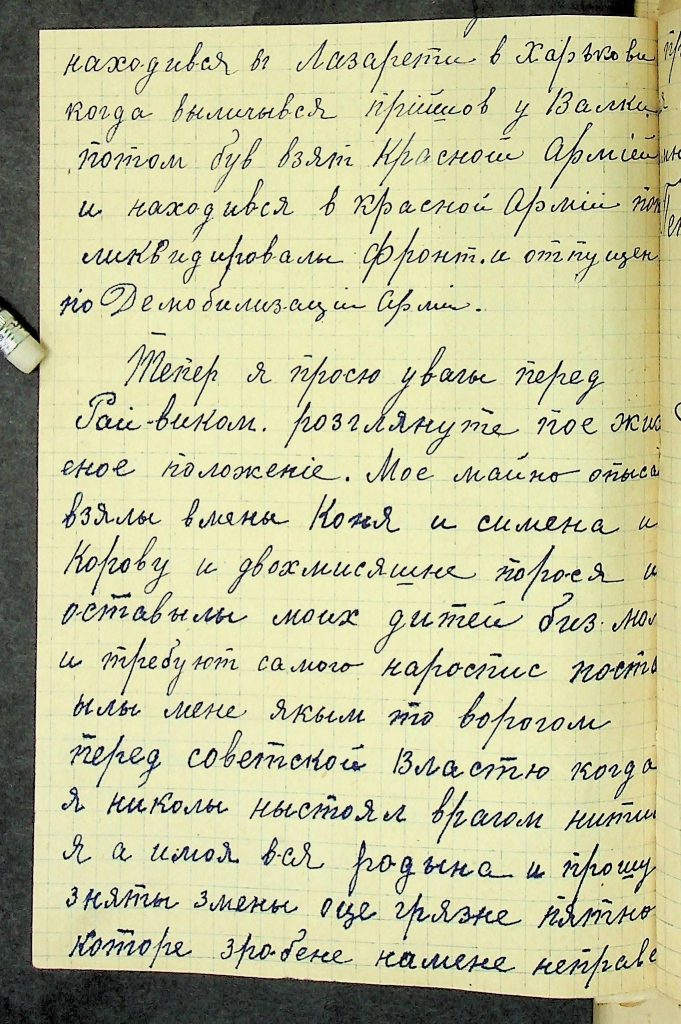 находився ві Лазарети в Харькови
когда выличывся прійшов у Валки
потом був взят Красной Арміей
и находився в красной Арміи пок
ликвидировалы фронт. и отпущен
по Демобилизаціи Арміи.
Тепер я просю увагы перед
Рай-виком. розглянуте пое жис
еное положеніе. Мое майно описа
взялы вмены Коня и симена и
Корову и двохмисяшне порося и
оставылы моих дитей биз мол
и требуют самого наростис поста
ылы мене якым то ворогом
перед советской Властю когда
я николы ныстоял врагом нитил
я а имоя вся родына и прошу
зняты змены оце грязне пятно
которе зробене намене неправе